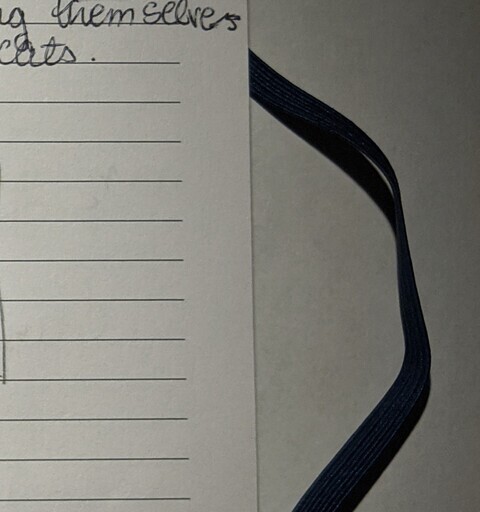 themselves
cats.